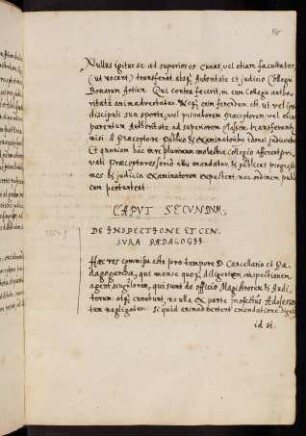 Nullus igitur se ad superiores Curas, vel etiam facultates
(ut vocant) transferat absq; Autoritate et judicio Collegij
Bonarum Artium. Qui contra fecerit, in eum Collegij autho-
ritate animadvertatur. Neq; enim ferendum est, ut vel ipsi
discipuli sua sponte, vel privatorum praeceptorum, vel etiam
parentum Authoritate ad superiorem Classem transferantur,
nisi à Praeceptore Publico & Examinatoribus donec judicentur.
Et quoniam hac in re plurimum molestiae Collegio afferunt pri-
vati Praeceptores, serio illis mandatur, ut publicas progressio-
nes & judicia Examinatorum expectent, nec ordinem publi-
cum perturbent.
CAPUT SECUNDUM,
DE INSPECTIONE ET CEN-
SURA PÆDAGOGII
Hæc res commissa esto pro tempore D. Cancellario et Pæ-
dagogarchæ, qui mense quoq; diligentem inspectionem
agent singulorum, qui sunt de officio Magistrorum & Audi-
torum atq; curabunt, ne ulla ex parte infectus Adolescen-
tum negligatur. Si quid animadverterint emendatione dignum
id vt.